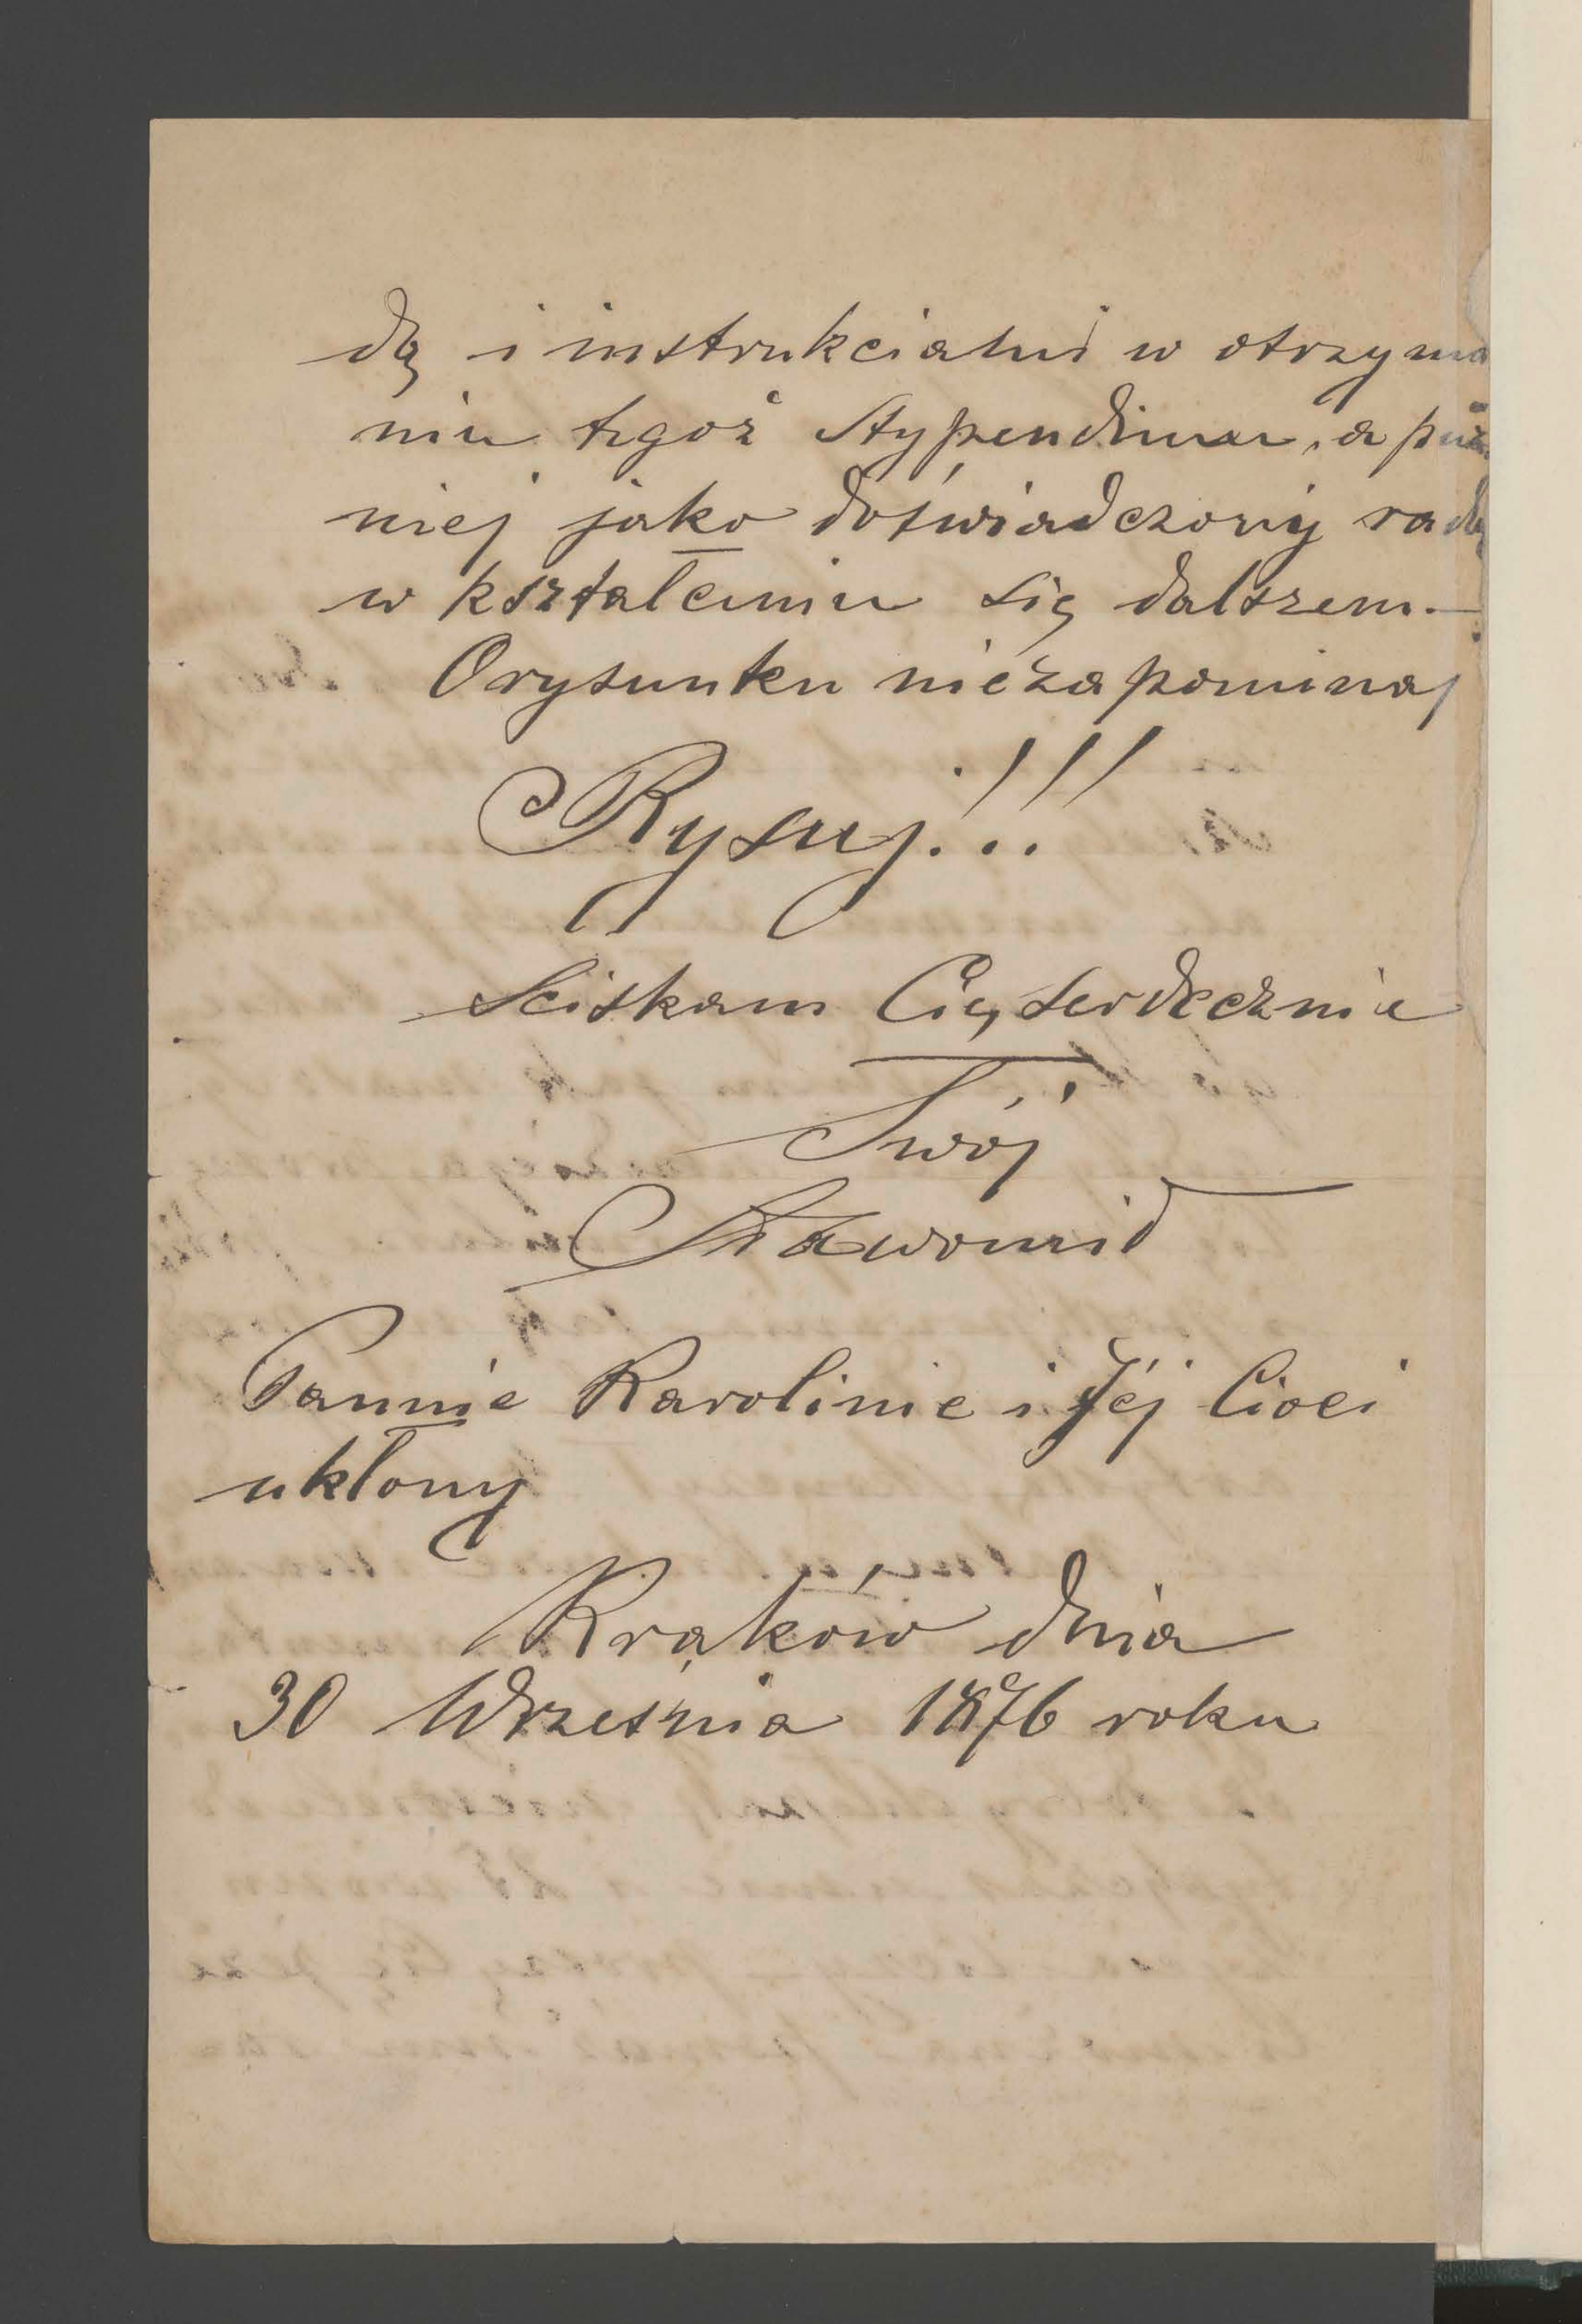 dą i instrukciami w otrzyma
niu tegoż Stypendium, a póź
niej jako doświadczony radą
w kształceniu się dalszem.—
Orysunku niezapominaj
Rysuj!!!
Sciskam Cię serdecznie
Twój
Sławomid
Pannie Karolinie i Jéj Cioci
ukłony
Kraków dnia
30 Września 1876 roku